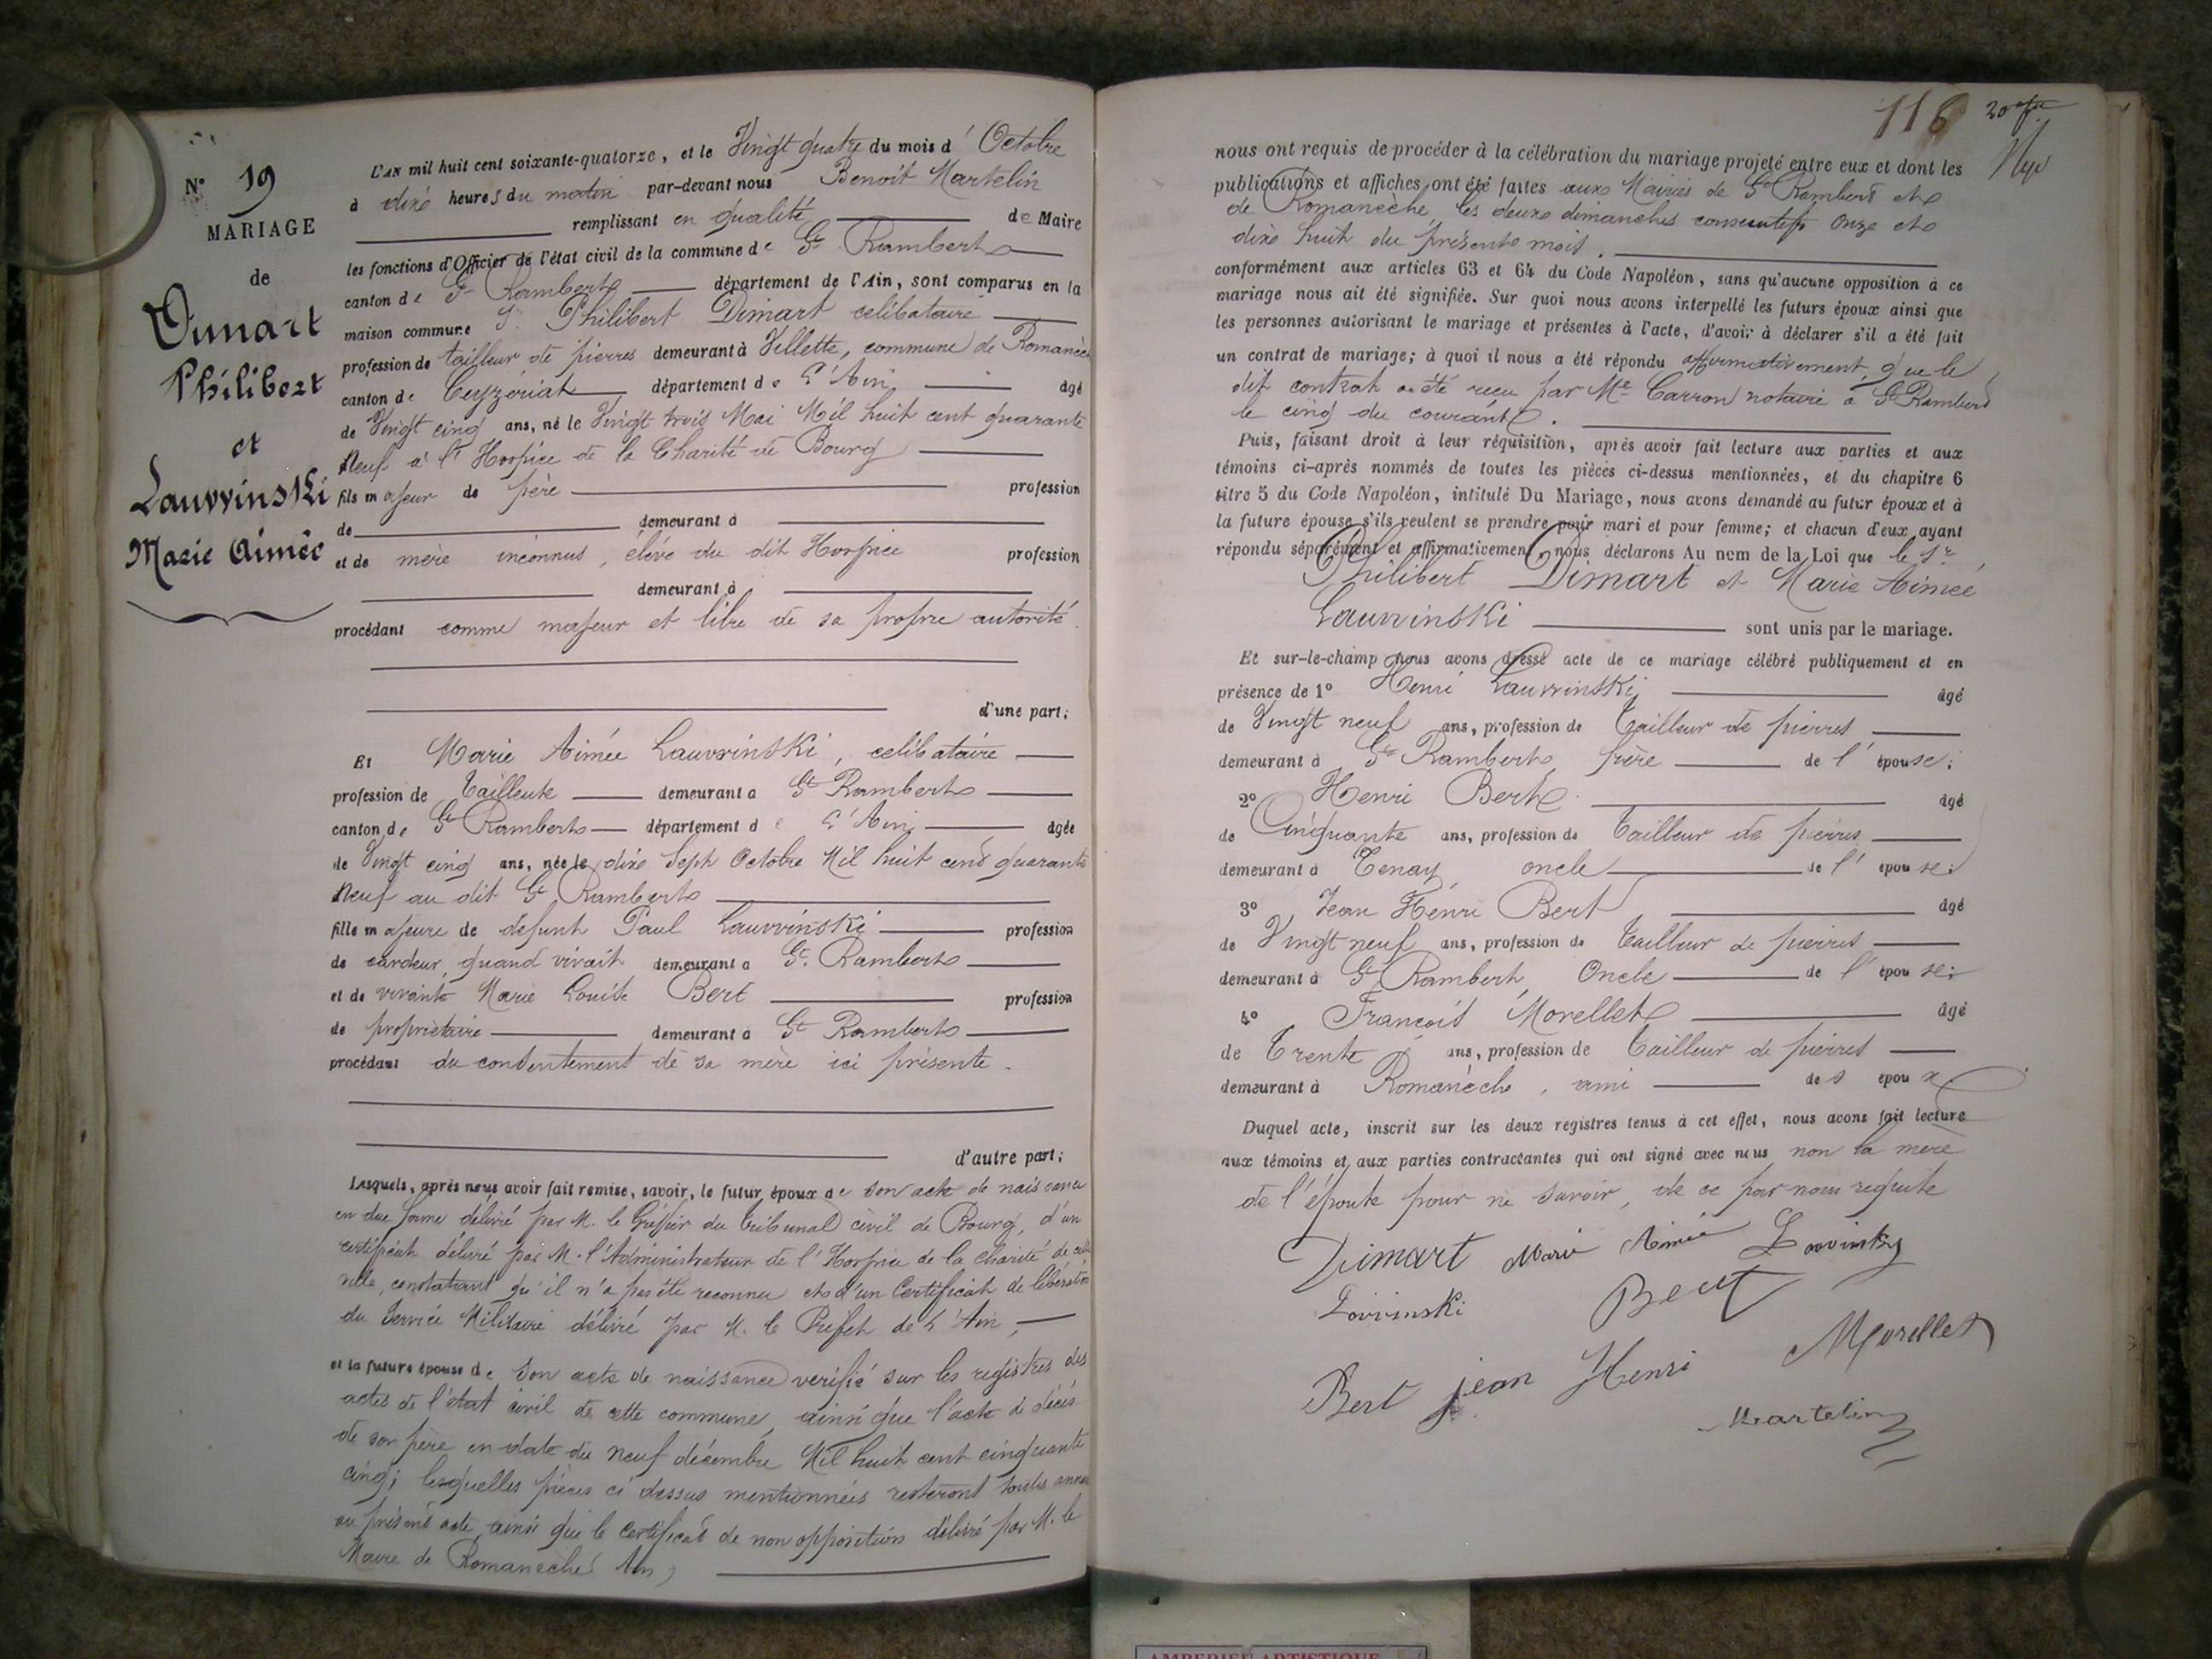 N° 19
MARIAGE
de
Dimart
Philibert
et
Lauvrinski
Marie Aimée
L'AN mil huit cent soixante-quatorze, et le Vingt quatre du mois d'Octobre
à dix heures du matin par-devant nous Benoit Martelin
remplissant en qualité de Maire
les fonctions d'Officier de l'état civil de la commune de St Rambert
canton de St Rambert département de l'Ain, sont comparus en la
maison commune Sr Philibert Dimart celibataire
profession de tailleur de pierres demeurant à Villette, commune de Romanèche
canton de Ceyzériat département de L'Ain âgé
de Vingt cinq ans, né le Vingt trois Mai Mil huit cent quarante
Neuf à l'Hospice de la Charité de Bourg
fils majeur de père profession
de demeurant à
et de mère inconnus, élève du dit Hospice profession
demeurant à
procédant comme majeur et libre de sa propre autorité.
d'une part;
Et Marie Aimée Lauvrinski, celibataire
profession de Tailleuse demeurant à St Rambert
canton de St Rambert département de L'Ain âgée
de Vingt cinq ans, née le dix Sept Octobre Mil huit cent quarante
Neuf au dit St Rambert
fille majeure de défunt Paul Lauvrinski profession
de cardeur, quand vivait demeurant à St Rambert
et de vivante Marie Louise Bert profession
de propriétaire demeurant à St Rambert
procédant du consentement de sa mère ici présente.
d'autre part;
Lesquels, après nous avoir fait remise, savoir, le futur époux de son acte de naissance
en due forme délivré par M. le Gréfier du tribunal civil de Bourg, d'un
certificat délivré par M. l'Administrateur de l'Hospice de la charité de cette
ville, constatant qu'il n'a pas été reconnu et d'un Certificat de libération
du Service Militaire délivré par M. le Préfet de L'Ain,
et la future épouse de son acte de naissance vérifié sur les registres des
actes de l'état civil de cette commune, ainsi que l'acte de décès
de son père en date du neuf décembre Mil huit cent cinquante
cinq; lesquelles pièces ci dessus mentionnées resteront toutes
au présent acte, ainsi que le certificat de non opposition délivré par M. le
Maire de Romanèche Ain,
116
nous ont requis de procéder à la célébration du mariage projeté entre eux et dont les
publications et affiches ont été faites aux Mairies de St Rambert et
de Romanèche, les deux dimanches consecutifs Onze et
dix huit du présent mois.
conformément aux articles 63 et 64 du Code Napoléon, sans qu'aucune opposition à ce
mariage nous ait été signifiée. Sur quoi nous avons interpellé les futurs époux ainsi que
les personnes autorisant le mariage et présentes à l'acte, d'avoir à déclarer s'il a été fait
un contrat de mariage; à quoi il nous a été répondu affirmativement, que le
dit contrat a été reçu par Me Carron notaire à St Rambert
le cinq du courant.
Puis, faisant droit à leur réquisition, après avoir fait lecture aux parties et aux
témoins ci-après nommés de toutes les pièces ci-dessus mentionnées, et du chapitre 6
titre 5 du Code Napoléon, intitulé Du Mariage, nous avons demandé au futur époux et à
la future épouse s'ils veulent se prendre pour mari et pour femme; et chacun d'eux ayant
répondu séparément et affirmativement, nous déclarons Au nom de la Loi que le Sr
Philibert Dimart et Marie Aimée
Lauvrinski sont unis par le mariage.
Et sur-le-champ nous avons dressé acte de ce mariage célébré publiquement et en
présence de 1° Henri Lauvrinski âgé
de Vingt neuf ans, profession de Tailleur de pierres
demeurant à St Rambert, frère de l'épouse;
2° Henri Bert âgé
de Cinquante ans, profession de Tailleur de pierres
demeurant à Tenay oncle de l'épouse;
3° Jean Henri Bert âgé
de Vingt neuf ans, profession de Tailleur de pierres
demeurant à St Rambert, Oncle de l'épouse;
4° François Morellet âgé
de Trente ans, profession de Tailleur de pierres
demeurant à Romanèche, ami des époux
Duquel acte, inscrit sur les deux registres tenus à cet effet, nous avons fait lecture
aux témoins et aux parties contractantes qui ont signé avec nous non la mère
de l'épouse pour ne savoir, de ce par nous requise
Dimart Marie Aimée Lovvinsky
Lovvinski Bert
Morellet
Bert jean Henri
Martelin
AMBERIEU ARTISTIQUE